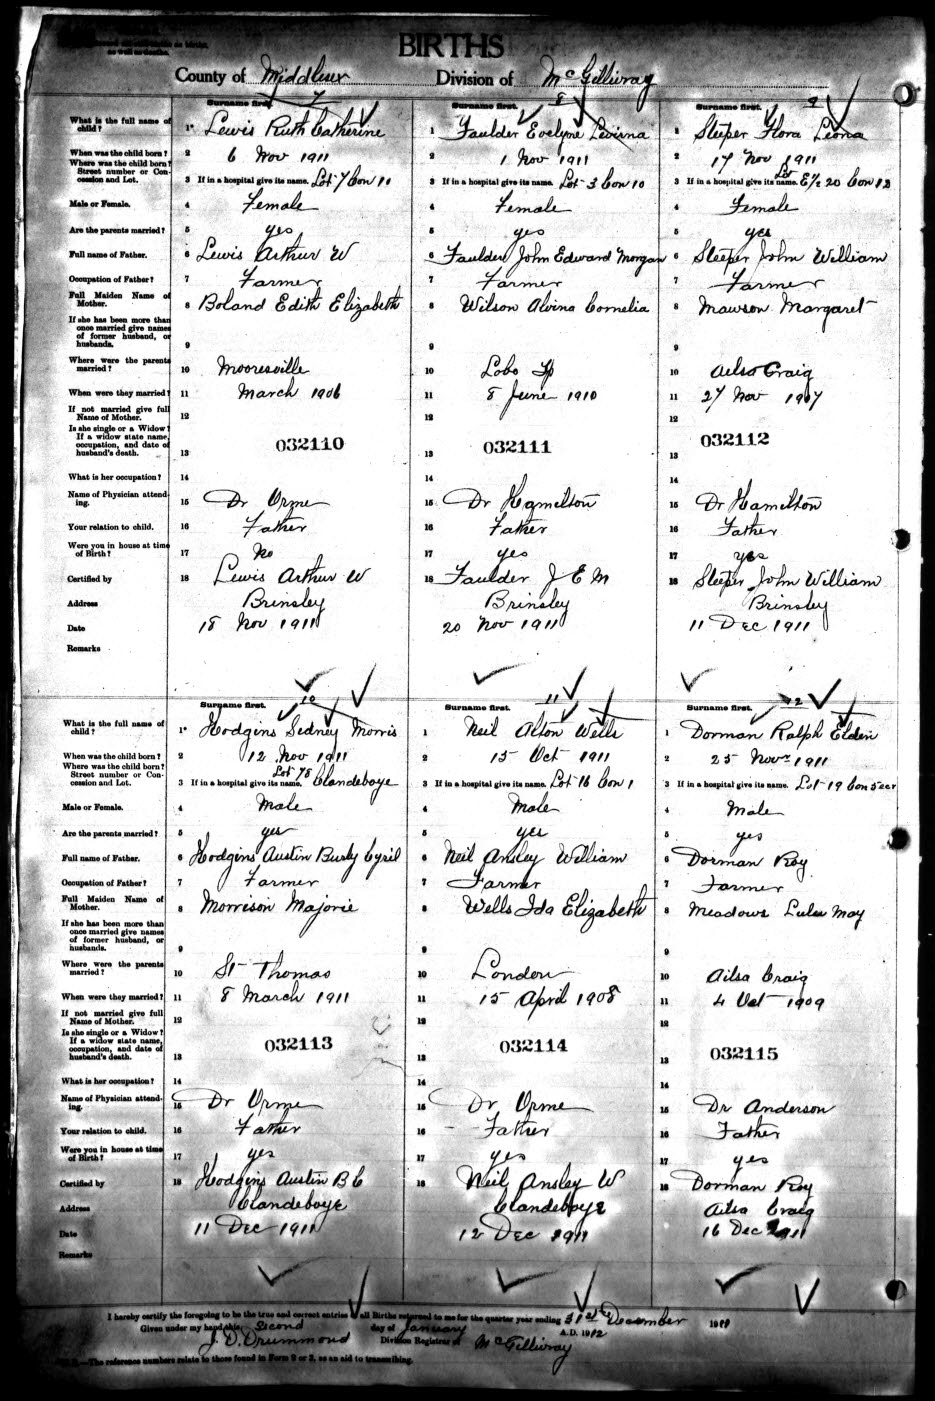 BIRTHS
County of Middlesex Division of McGillivray
7 8 9
Surname first. Surname first. Surname first.
What is the full name of child? 1 Lewis Ruth Catherine 1 Faulder Evelyne Levirna 1 Sleeper Flora Leona
When was the child born? 2 6 Nov 1911 2 1 Nov 1911 2 17 Nov 1911
Where was the child born?
Street number or Con-
cession and Lot. 3 If in a hospital give its name. Lot 7 Con 11 3 If in a hospital give its name. Lot 3 Con 10 3 If in a hospital give its name. Lot E½ 20 Con 12
Male or Female. 4 Female 4 Female 4 Female
Are the parents married? 5 yes 5 yes 5 yes
Full name of Father. 6 Lewis Arthur W 6 Faulder John Edward Morgan 6 Sleeper John William
Occupation of Father? 7 Farmer 7 Farmer 7 Farmer
Full Maiden Name of
Mother. 8 Boland Edith Elizabeth 8 Wilson Alvina Cornelia 8 Mawson Margaret
If she has been more than
once married give names
of former husband, or
husbands. 9 9 9
Where were the parents
married? 10 Mooresville 10 Lobo Tp 10 Ailsa Craig
When were they married? 11 March 1906 11 8 June 1910 11 27 Nov 1907
If not married give full
Name of Mother. 12 12 12
Is she single or a Widow?
If a widow state name,
occupation, and date of
husband's death. 13 032110 13 032111 13 032112
What is her occupation? 14 14 14
Name of Physician attend-
ing. 15 Dr Orme 15 Dr Hamilton 15 Dr Hamilton
Your relation to child. 16 Father 16 Father 16 Father
Were you in house at time
of Birth? 17 No 17 yes 17 yes
Certified by 18 Lewis Arthur W 18 Faulder J E M 18 Sleeper John William
Address Brinsley Brinsley Brinsley
Date 18 Nov 1911 20 Nov 1911 11 Dec 1911
Remarks
10 11 12
Surname first. Surname first. Surname first.
What is the full name of
child? 1 Hodgins Sidney Morris 1 Neil Alton Wells 1 Dorman Ralph Elden
When was the child born? 2 12 Nov 1911 2 15 Oct 1911 2 25 Novr 1911
Where was the child born?
Street number or Con-
cession and Lot. 3 If in a hospital give its name. Lot 75 Clandeboye 3 If in a hospital give its name. Lot 16 Con 1 3 If in a hospital give its name. Lot 19 Con 5 ecr
Male or Female. 4 Male 4 Male 4 Male
Are the parents married? 5 yes 5 yes 5 yes
Full name of Father. 6 Hodgins Austin Busby Cyril 6 Neil Ansley William 6 Dorman Roy
Occupation of Father? 7 Farmer 7 Farmer 7 Farmer
Full Maiden Name of
Mother. 8 Morrison Majorie 8 Wells Ida Elizabeth 8 Meadows Lulu May
If she has been more than
once married give names
of former husband, or
husbands. 9 9 9
Where were the parents
married? 10 St Thomas 10 London 10 Ailsa Craig
When were they married? 11 8 March 1911 11 15 April 1908 11 4 Oct 1909
If not married give full
Name of Mother. 12 12 12
Is she single or a Widow?
If a widow state name,
occupation, and date of
husband's death. 13 032113 13 032114 13 032115
What is her occupation? 14 14 14
Name of Physician attend-
ing. 15 Dr Orme 15 Dr Orme 15 Dr Anderson
Your relation to child. 16 Father 16 Father 16 Father
Were you in house at time
of Birth? 17 yes 17 yes 17 yes
Certified by 18 Hodgins Austin B C 18 Neil Ansley W 18 Dorman Roy
Address Clandeboye Clandeboye Ailsa Craig
Date 11 Dec 1911 12 Dec 1911 16 Dec 1911
Remarks
I hereby certify the foregoing to be the true and correct entries of all Births returned to me for the quarter year ending 31st December 1911
Given under my hand this second day of January A.D. 1912
J. D. Drummond Division Registrar of McGillivray
N.B.—The reference numbers relate to those found in Form 2 or 3, as an aid to transcribing.